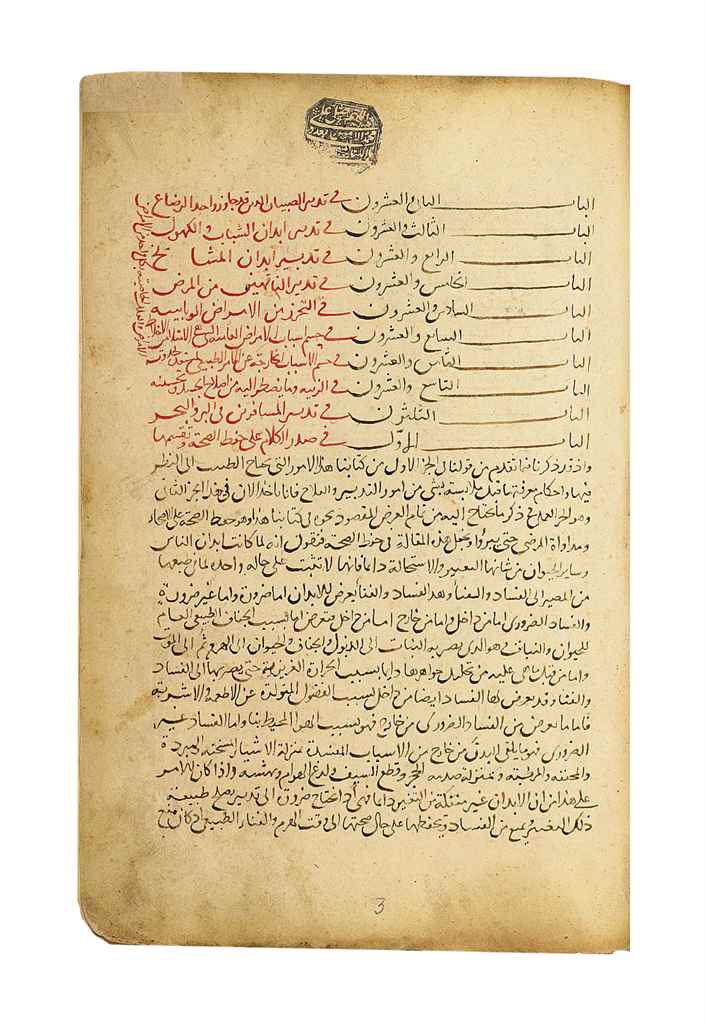 الباب الثاني والعشرون في تدبير الصبيان الذين قد جاوزوا حد الرضاع
الباب الثالث والعشرون في تدبير ابدان الشباب والكهول
الباب الرابع والعشرون في تدبير ابدان المشايخ
الباب الخامس والعشرون في تدبير الناقهين من المرض
الباب السادس والعشرون في التحرز من الامراض الوبائية
الباب السابع والعشرون في حسم اسباب الامراض
الباب الثامن والعشرون في حسم الاسباب الخارجة عن الامر الطبيعي
الباب التاسع والعشرون في الزينة وما يضطر اليه من اصلاح
الباب الثلثون في تدبير المسافرين في البر والبحر
الباب الاول في صدر الكلام على حفظ الصحة وتقسيمها
واذ قد ذكرنا فيما تقدم من قولنا في الجزء الاول من كتابنا هذا الامور التي يحتاج الطبيب الى النظر
فيها واحكام معرفتها قبل ملابسته بشي من امور التدبير والعلاج فانا ناخذ الان في هذا الجزء الثاني
وهو الجزء العملي في ذكر ما يحتاج اليه من تمام الغرض المقصود نحوه في كتابنا هذا وهو حفظ الصحة على الاصحاء
ومداواة المرضى حتى يبروا ونجعل هذه المقالة في حفظ الصحة فنقول انه لما كانت ابدان الناس
وساير الحيوان من شانها التغيير والاستحالة دايما فانها لا تثبت على حالة واحدة لما في طبعها
من المصير الى الفساد والفناء وهذا الفساد والفناء يعرض للابدان اما ضرورة واما غير ضرورة
والفساد الضروري اما من داخل واما من خارج اما من داخل فتعرض اما بسبب الجفاف الطبيعي العام
للحيوان والنبات وهو الذي يصير به النبات الى الذبول والجفاف والحيوان الى الهرم ثم الى الموت
واما من قبل ما هي عليه من تحليل جواهرها دايما بسبب الحرارة الغريزية حتى يصير بها الى الفساد
والفناء وقد يعرض لها الفساد ايضا من داخل بسبب الفضول المتولدة عن الاطعمة والاشربة
فاما ما يعرض من الفساد الضروري من خارج فهو بسبب الهواء المحيط بنا واما الفساد غير
الضروري فهو ما يلقى البدن من خارج من الاسباب المفسدة بمنزلة الاشياء المسخنة المبردة
والمجففة والمرطبة وبمنزلة صدمة الحجر وقطع السيف ولدغ الهوام ونهشه واذا كان الامر
على هذا من ان الابدان غير منفكة من التغير دايما فهي اذا تحتاج ضرورة الى تدبير يصلح طبيعة
ذلك التغيير ويمنع من الفساد ويحفظها على حال صحتها الى وقت الهرم والفناء الطبيعي اذ كان
3